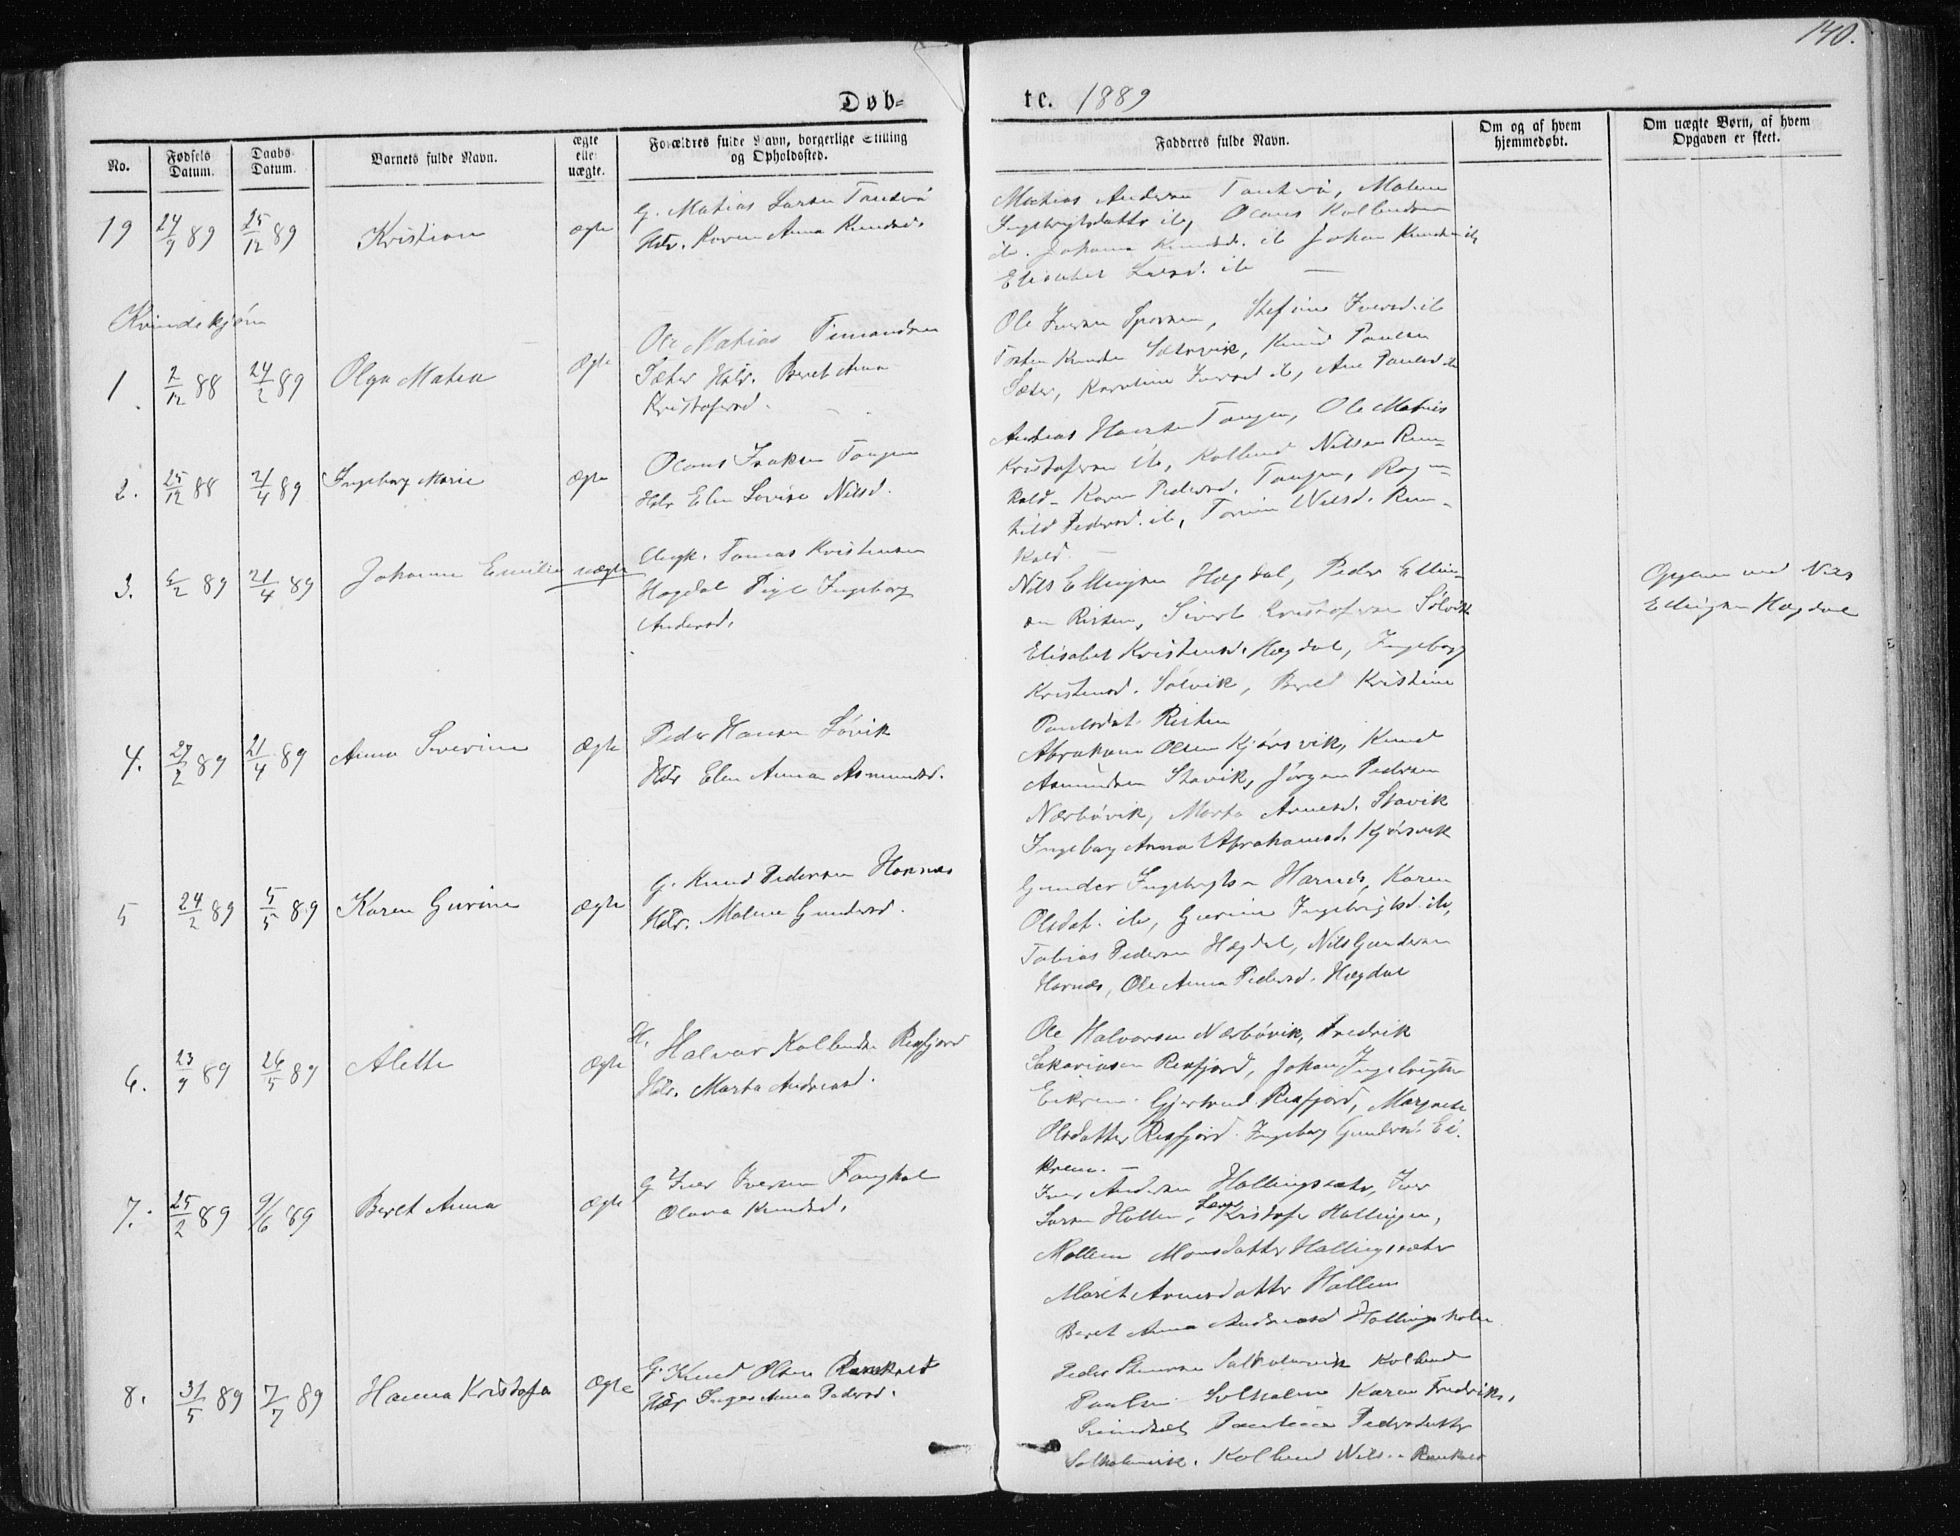 140.
Døb-
te. 1889
No.
Fødsels Datum.
Daabs Datum.
Barnets fulde Navn.
ægte eller uægte.
Forældres fulde Navn, borgerlige Stilling og Opholdssted.
Fadderes fulde Navn.
Om og af hvem hjemmedøbt.
Om uægte Børn, af hvem Opgaven er skeet.
19 24/9 89 25/12 89 Kristian ægte
G. Matias Larsen
Hstr. Anna Knudsd.
Matias Andersen Malene
Ingebrigtsdatter ib,
ib. Johanna Knudsd. ib Johan Knudsen ib
Elisabet Larsd. ib —
Kvindekjøn
1 2/12 88 24/2 89 Olga Matea Ægte
Ole Matias
Sæter Hstr. Beret Anna
Kristofersd.
Ole Iversen Iversd. ib
Knud Paulsen
Sæter, Karoline Iversd ib, Ane Paulsd ib
2. 25/12 88 21/4 89 Ingeborg Marie Ægte
Olaus Isaksen Tangen
Hstr Elen Lovise Nilsd.
Tangen, Ole Matias
Kristofersen ib, Kolbend Nilsen Ren-
kald- Karen Pedersd. Tangen, Ragn-
hild Pedersd. ib, Nilsd. Ren-
kald. —
3. 6/2 89 21/4 89 Johanne Emilie uægte
Ungk. Tomas Kristensen
Høgdal Pige Ingeborg
Andersd.
Nils Ellingsen Høgdal, Peder Ellin-
sen Risten, Sivert Kristofersen Solvik
Elisabet Kristensd. Høgdal, Ingeborg
Kristensd. Solvik, Beret Kristine
Paulsdat. Risten
Opgiven ved Nils
Ellingsen Høgdal
4. 27/2 89 21/4 89 Anna Severine Ægte
Peder Hansen Søvik
Hstr Elen Anna Asmundsd.
Abraham Olsen Kjørsvik, Knud
Asmundsen Stavik, Jørgen Pedersen
Nærbøvik, Marta Arnesd. Stavik
Ingeborg Anna Abrahamsd. Kjørsvik
5 24/2 89 5/5 89 Karen Gurine Ægte
G. Knud Pedersen Harnæs
Hstr. Malene Gundersd.
Gunder Ingebrigtsen Harnæs, Karen
Olsdat. ib, Gurine Ingebrigtsd. ib,
Tobias Pedersen Høgdal, Nils Gundersen
Harnæs, Ole Anna Pedersd. Høgdal
6. 23/9 89 26/5 89 Alette Ægte
H. Halvor Kolbendsen Rensfjord
Hstr. Marta Andreasd.
Ole Halvorsen Nærbøvik, Fredrik
Sakariasen Rensfjord, Johan Ingebrigtsen
Eikrem. Gjertrud Rensfjord, Margrete
Olsdatter Rensfjord. Ingeborg Gundersd. Ei-
krem. —
7. 25/2 89 9/6 89 Beret Anna Ægte
G Iver Iversen
Olava Knudsd.
Iver Andersen Hallingsæter, Iver
Larsen Hallen, Lars Kristofer Hallingen,
Mallene Monsdatter Hallingsæter
Marit Arnesdatter Hallen
Beret Anna Andreasd Hallingsholm
8. 31/5 89 7/7 89 Hanna Kristofa Ægte
G. Knud Olsen Renkald
Hstr Inger Anna Pedersd.
Peder Solholmvik Kolbend
Paulsen Solholm Karen Fredriks.
Pedersdatter
Solholmvik. Kolbend Nils.. Renkald